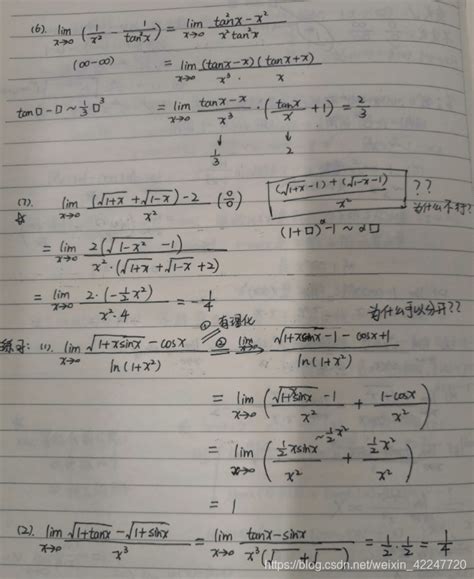 (6). lim x→0 (1/x² - 1/tan²x) = lim x→0 (tan²x - x²)/(x² tan²x)
(∞-∞) = lim x→0 (tanx-x)(tanx+x)/(x³ · x)
tan□ - □ ~ 1/3 □³ = lim x→0 (tanx-x)/x³ · (tanx/x + 1) = 2/3
↓ ↓
1/3 2
(7). lim x→0 ((√(1+x) + √(1-x)) - 2)/x² (0/0) ((√(1+x) - 1) + (√(1-x) - 1))/x² ??
☆ 为什么不行?
(1+□)^α - 1 ~ α□
= lim x→0 2(√(1-x²) - 1)/(x² · (√(1+x) + √(1-x) + 2))
= lim x→0 2·(-½x²)/(x²·4) = -1/4
为什么可以分开??
① 有理化
练习: (1). lim x→0 (√(1+xsinx) - cosx)/ln(1+x²) = ② lim x→0 (√(1+xsinx) - 1 - cosx + 1)/ln(1+x²)
= lim x→0 ((√(1+xsinx) - 1)/x² + (1-cosx)/x²)
= lim x→0 (½xsinx ~½x² /x² + ½x²/x²)
= 1
(2). lim x→0 (√(1+tanx) - √(1+sinx))/x³ = lim x→0 (tanx-sinx)/(x³(√ + √)) = 1/2 · 1/2 = 1/4
https://blog.csdn.net/weixin_42247720